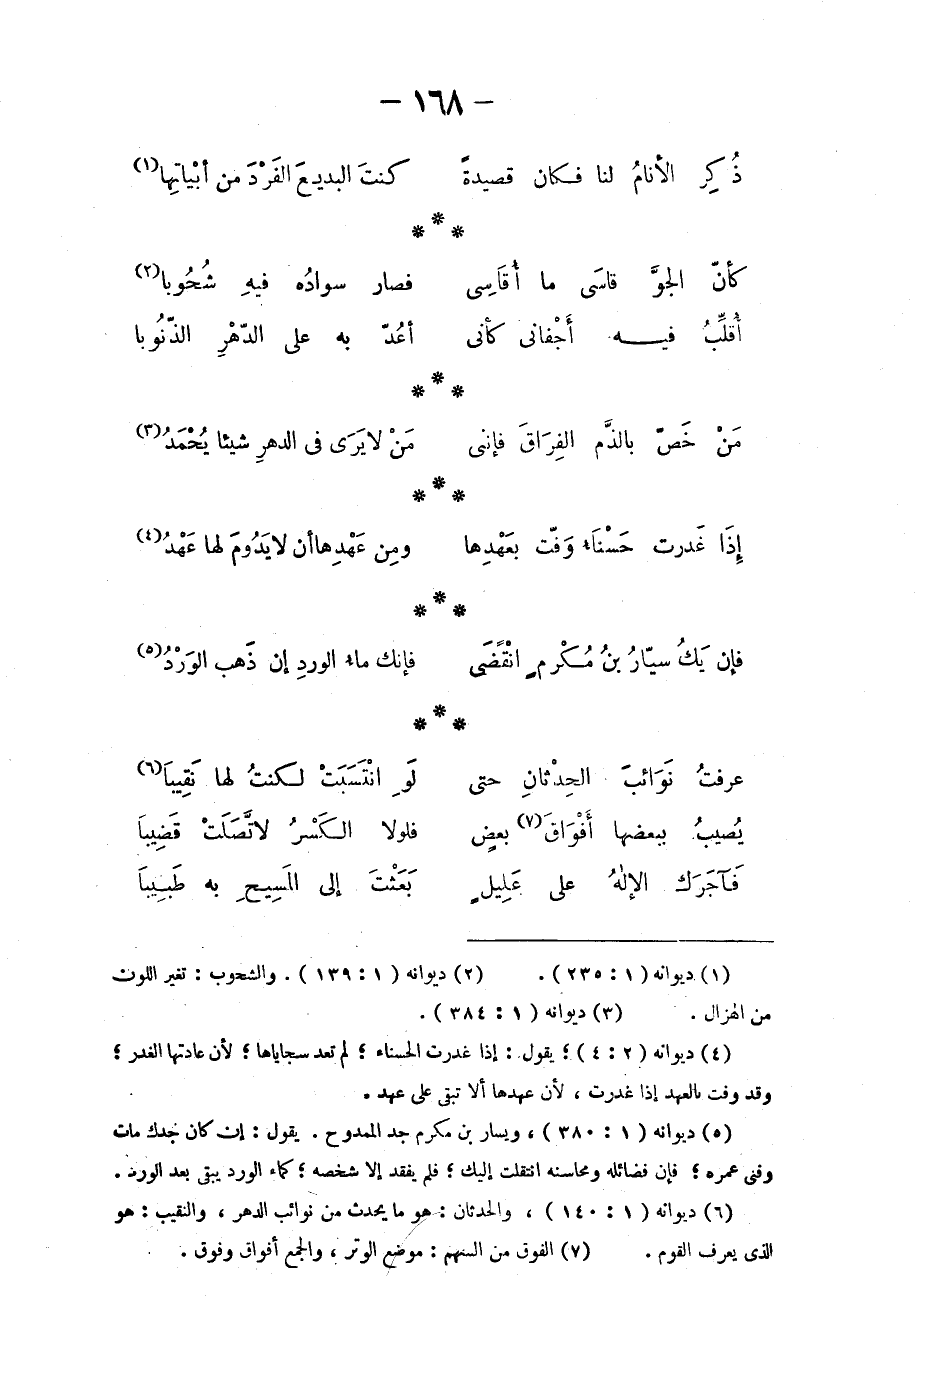 — ١٦٨ —
ذُكِر الأنامُ لنا فكان قصيدةً كنتَ البديعَ الفَرْدَ من أبْياتِها(١)
***
كأنّ الجوَّ قاسَى ما أُقَاسِى فصار سوادُه فيهِ شُحُوبا(٢)
أُقلِّبُ فيه أَجْفانى كأنى أعُدّ به على الدّهْرِ الذّنُوبا
***
مَنْ خَصّ بالذَّم الفِرَاقَ فإننى مَنْ لا يَرَى فى الدهرِ شيئا يُحْمَدُ(٣)
***
إِذَا غَدرت حَسْنَاء وَفّت بعَهْدِها ومِن عَهْدِها أن لا يَدُومَ لها عَهْدُ(٤)
***
فإن يَكُ سيّارُ بنُ مُكْرمٍ انْقَضَى فإنك ماء الوردِ إن ذَهب الوَرْدُ(٥)
***
عرفتُ نَوَائبَ الحِدْثانِ حتى لَوِ انْتَسَبَتْ لكنتُ لها نَقِيباَ(٦)
يُصيبُ ببعضها أَفْوَاقَ(٧) بعضٍ فلولا الكَسْرُ لاتَّصَلَتْ قَضِيباَ
فَآجَرَك الإلٰهُ على عَلِيلٍ بَعَثْتَ إلى المَسِيحِ به طَبِيباَ
(١) ديوانه ( ١ : ٢٣٥ ) . (٢) ديوانه ( ١ : ١٣٩ ) . والشحوب : تغير اللون
من الهزال . (٣) ديوانه ( ١ : ٣٨٤ ) .
(٤) ديوانه ( ٢ : ٤ ) ؛ يقول : إذا غدرت الحسناء ؛ لم تعد سجاياها ؛ لأن عادتها الغدر ؛
وقد وفت بالعهد إذا غدرت ، لأن عهدها ألا تبقى على عهد .
(٥) ديوانه ( ١ : ٣٨٠ ) ، ويسار بن مكرم جد الممدوح . يقول : إن كان جدك مات
وفنى عمره ؛ فإن فضائله ومحاسنه انتقلت إليك ؛ فلم يفقد إلا شخصه ؛ كماء الورد يبقى بعد الورد .
(٦) ديوانه ( ١ : ١٤٠ ) ، والحدثان : هو ما يحدث من نوائب الدهر ، والنقيب : هو
الذى يعرف القوم . (٧) الفوق من السهم : موضع الوتر ، والجمع أفواق وفوق .